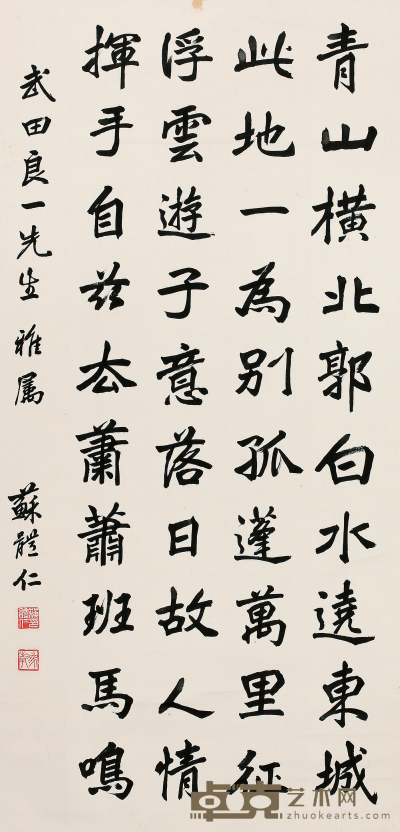 青山橫北郭白水遶東城
此地一為別孤蓬萬里征
浮雲遊子意落日故人情
揮手自茲去蕭蕭班馬鳴
武田良一先生 雅屬
蘇體仁
卓克艺术网
zhuokearts.com